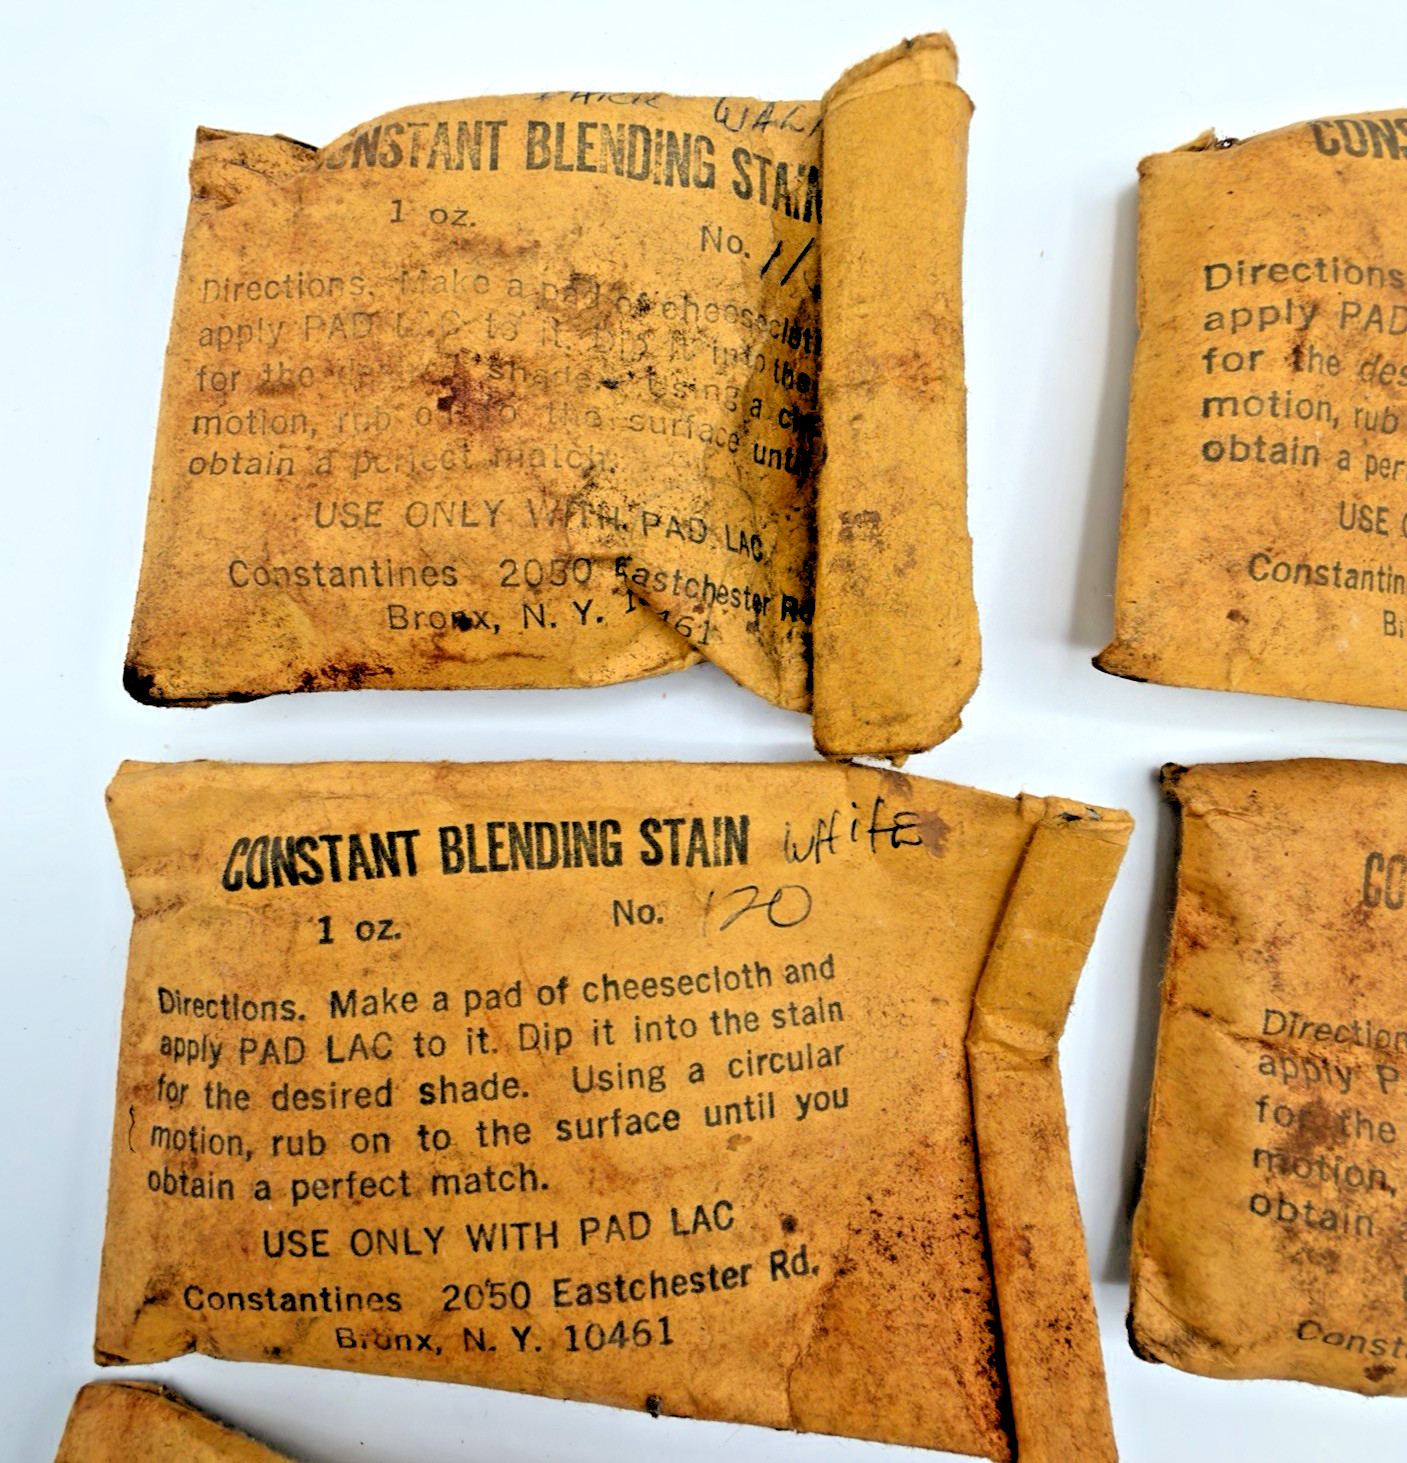 DARK WAL
CONSTANT BLENDING STAIN
1 oz.
No. 11
Directions. Make a pad of cheesecloth
apply PAD LAC to it. Dip it into the
for the desired shade. Using a cir
motion, rub on to the surface until
obtain a perfect match.
USE ONLY WITH PAD LAC
Constantines 2050 Eastchester Rd
Bronx, N. Y. 10461
CONS
Directions
apply PAD
for the des
motion, rub
obtain a per
USE
Constantin
CONSTANT BLENDING STAIN WHitE
1 oz. No. 120
Directions. Make a pad of cheesecloth and
apply PAD LAC to it. Dip it into the stain
for the desired shade. Using a circular
motion, rub on to the surface until you
obtain a perfect match.
USE ONLY WITH PAD LAC
Constantines 2050 Eastchester Rd.
Bronx, N. Y. 10461
CO
Direction
apply P
for the
motion,
obtain
Const